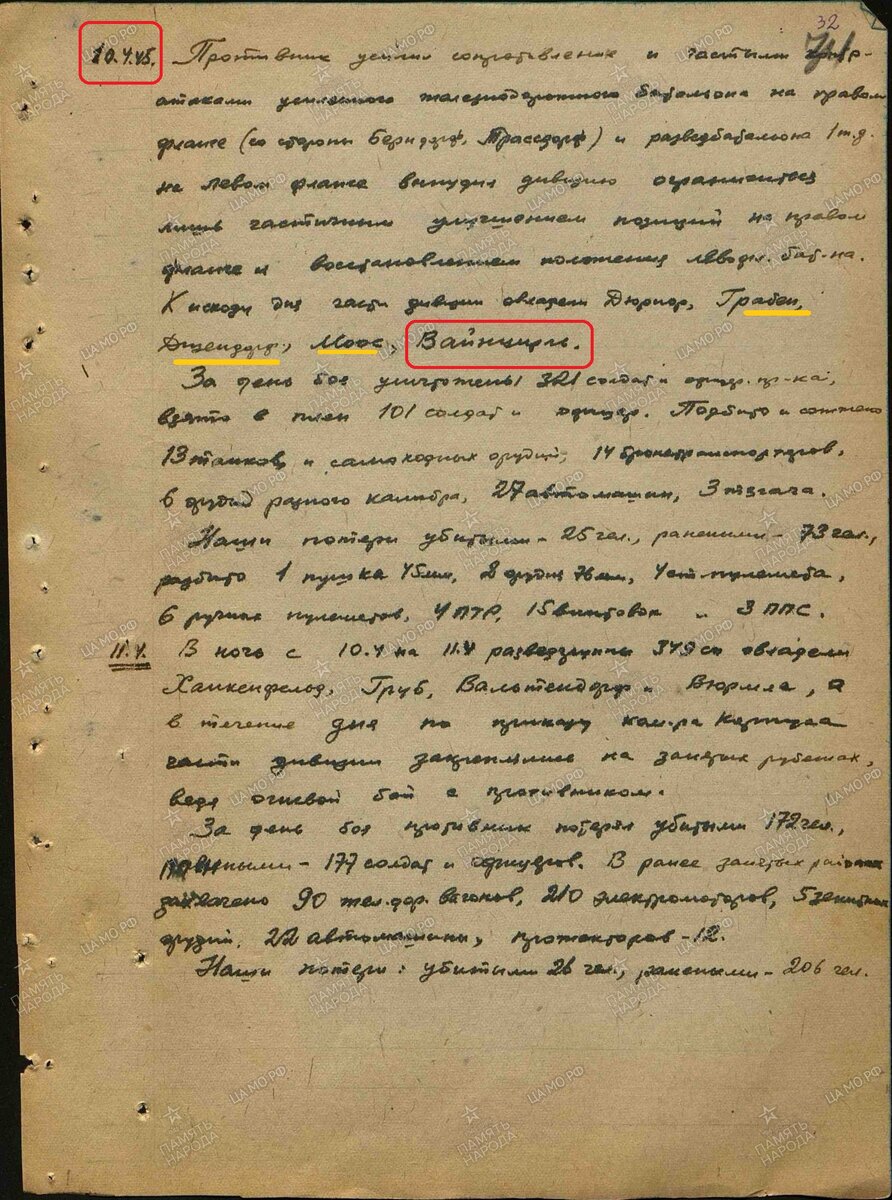 32
10.4.45. Противник усилил сопротивление и частыми контр-
атаками усиленного железнодорожного батальона на правом
фланге (со стороны Берндорф, Трассдорф) и разведбатальона 1 т.д.
на левом фланге вынудил дивизию ограничиться
лишь частичным улучшением позиций на правом
фланге и восстановлением положения левофл. бат-на.
К исходу дня части дивизии овладели Дюррор, Грабен,
Дизендорф, Моос, Вайнцирль.
За день боя уничтожены 321 солдат и офицер. пр-ка,
взято в плен 101 солдат и офицер. Подбито и сожжено
13 танков и самоходных орудий, 14 бронетранспортеров,
6 орудий разного калибра, 27 автомашин, 3 тягача.
Наши потери убитыми - 25 чел., ранеными - 73 чел.,
разбито 1 пушка 45мм, 2 орудия 76мм, 4 ст. пулемета,
6 ручных пулеметов, 4 ПТР, 15 винтовок и 3 ППС.
11.4. В ночь с 10.4 на 11.4 разведгруппы 349 сп овладели
Ханкенфельд, Груб, Вальтендорф и Вюрмла, а
в течение дня по приказу ком-ра Корпуса
части дивизии закреплялись на занятых рубежах,
ведя огневой бой с противником.
За день боя противник потерял убитыми 172 чел.,
ранеными - 177 солдат и офицеров. В ранее занятых районах
захвачено 90 жел.дор. вагонов, 210 электромоторов, 5 зенитных
орудий, 22 автомашины, прожекторов - 12.
Наши потери: убитыми 26 чел., ранеными - 206 чел.
ПАМЯТЬ НАРОДА
ЦАМО.РФ